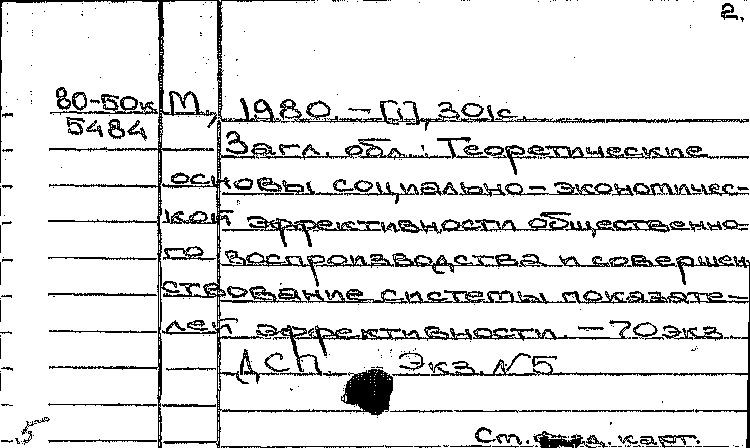 2.
80-50к М., 1980. – [1], 301с.
5484
Загл. обл.: Теоретические
основы социально-экономичес-
кой эффективности общественно-
го воспроизводства и совершен
ствование системы показате-
лей эффективности. – 70экз
ДСП. Экз. №5
5
Ст. карт.